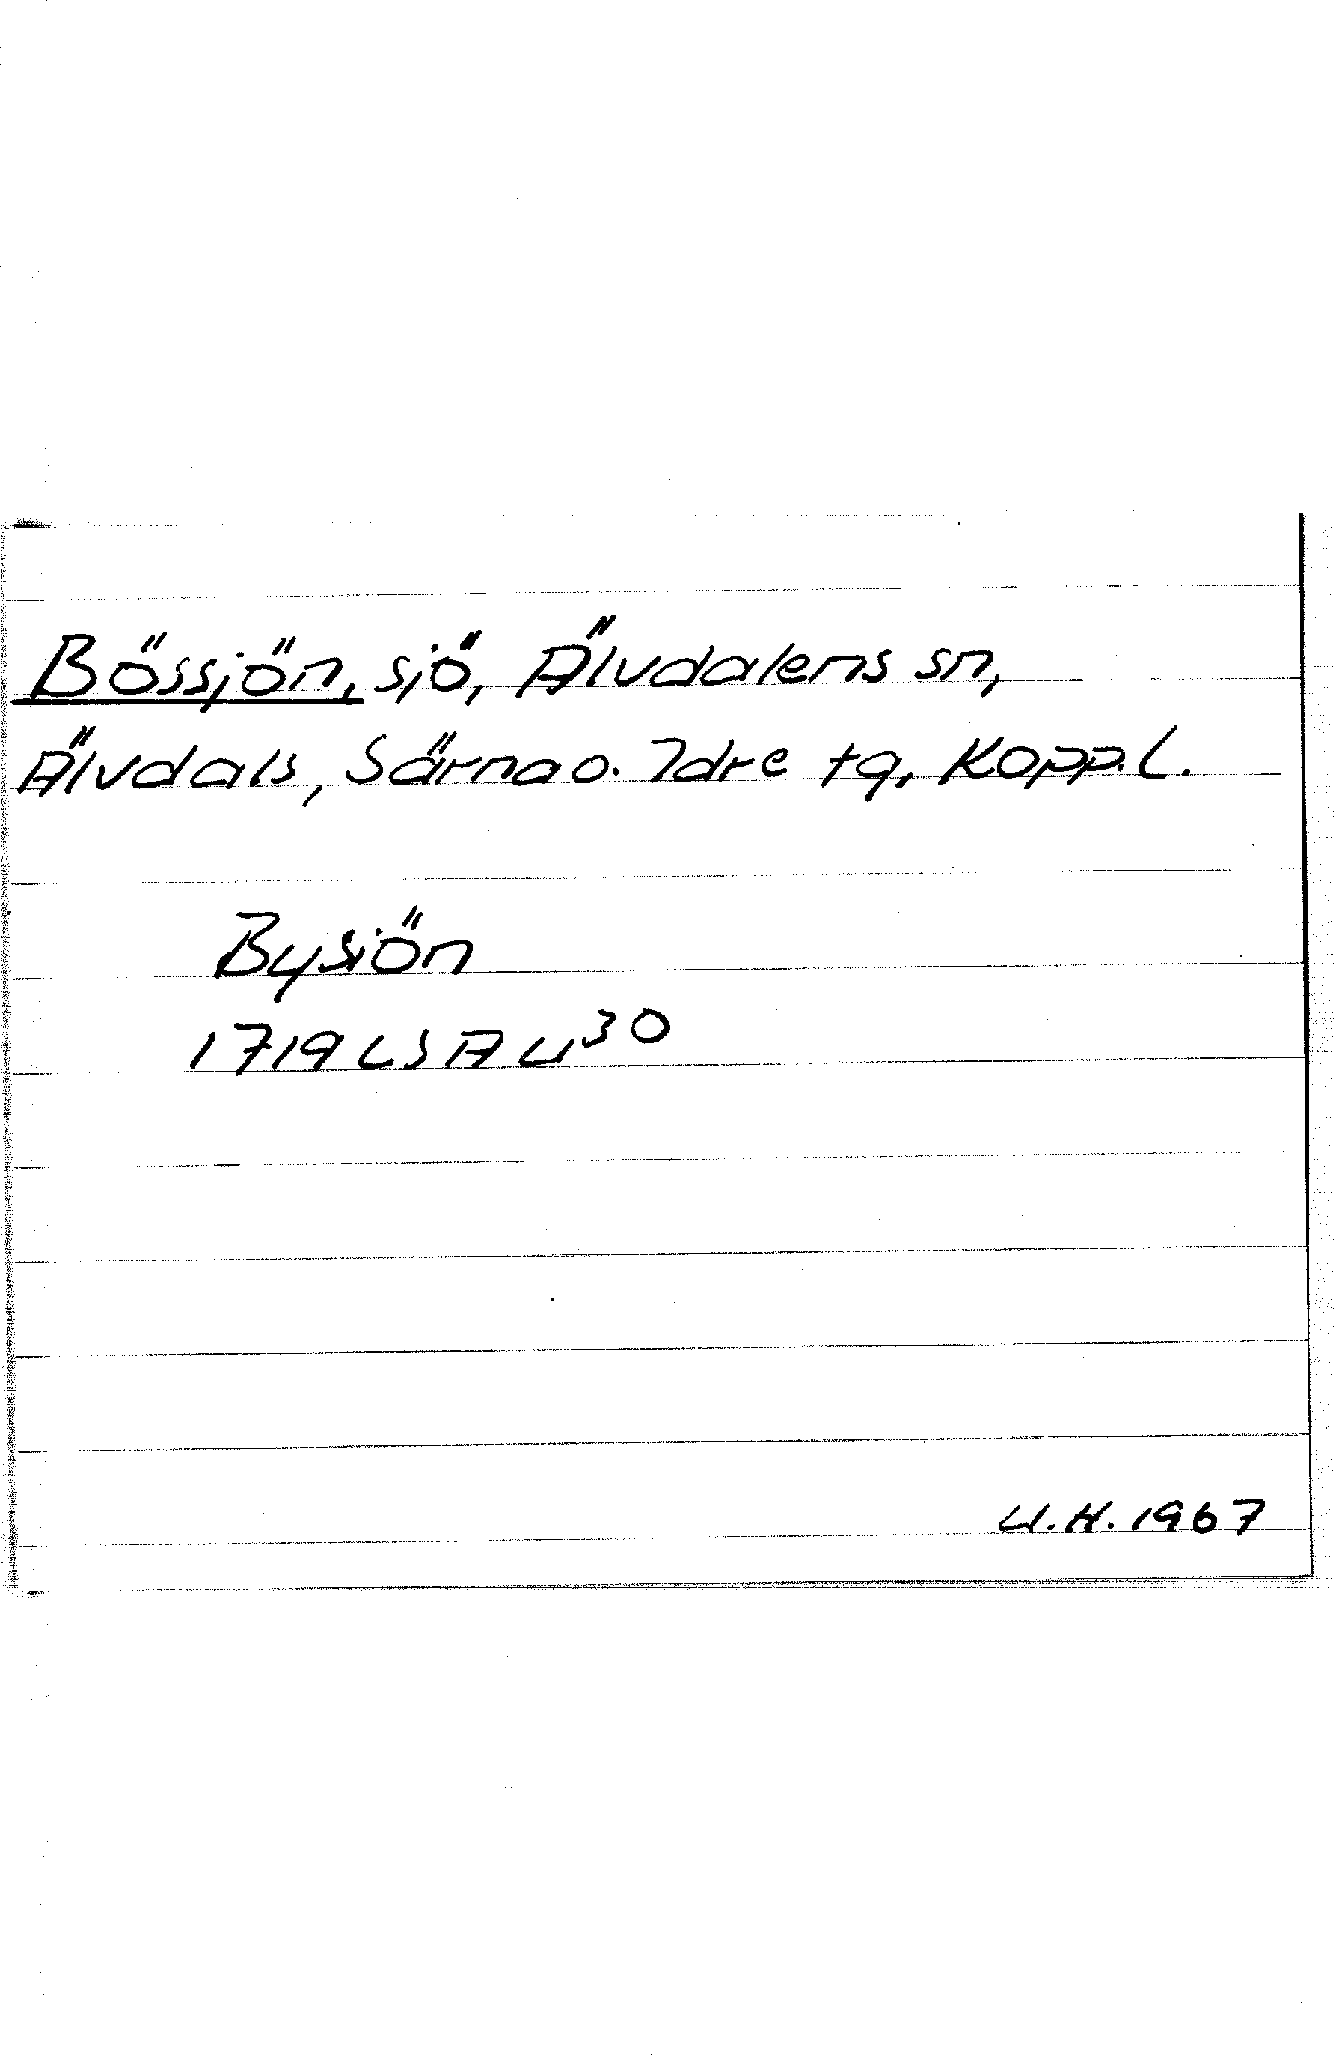 Bössjön, sjö, Älvdalens sn,
Älvdals, Särna o. Idre tg, Kopp.l.
Bysiön
1719 LSA U³⁰
U.H. 1967